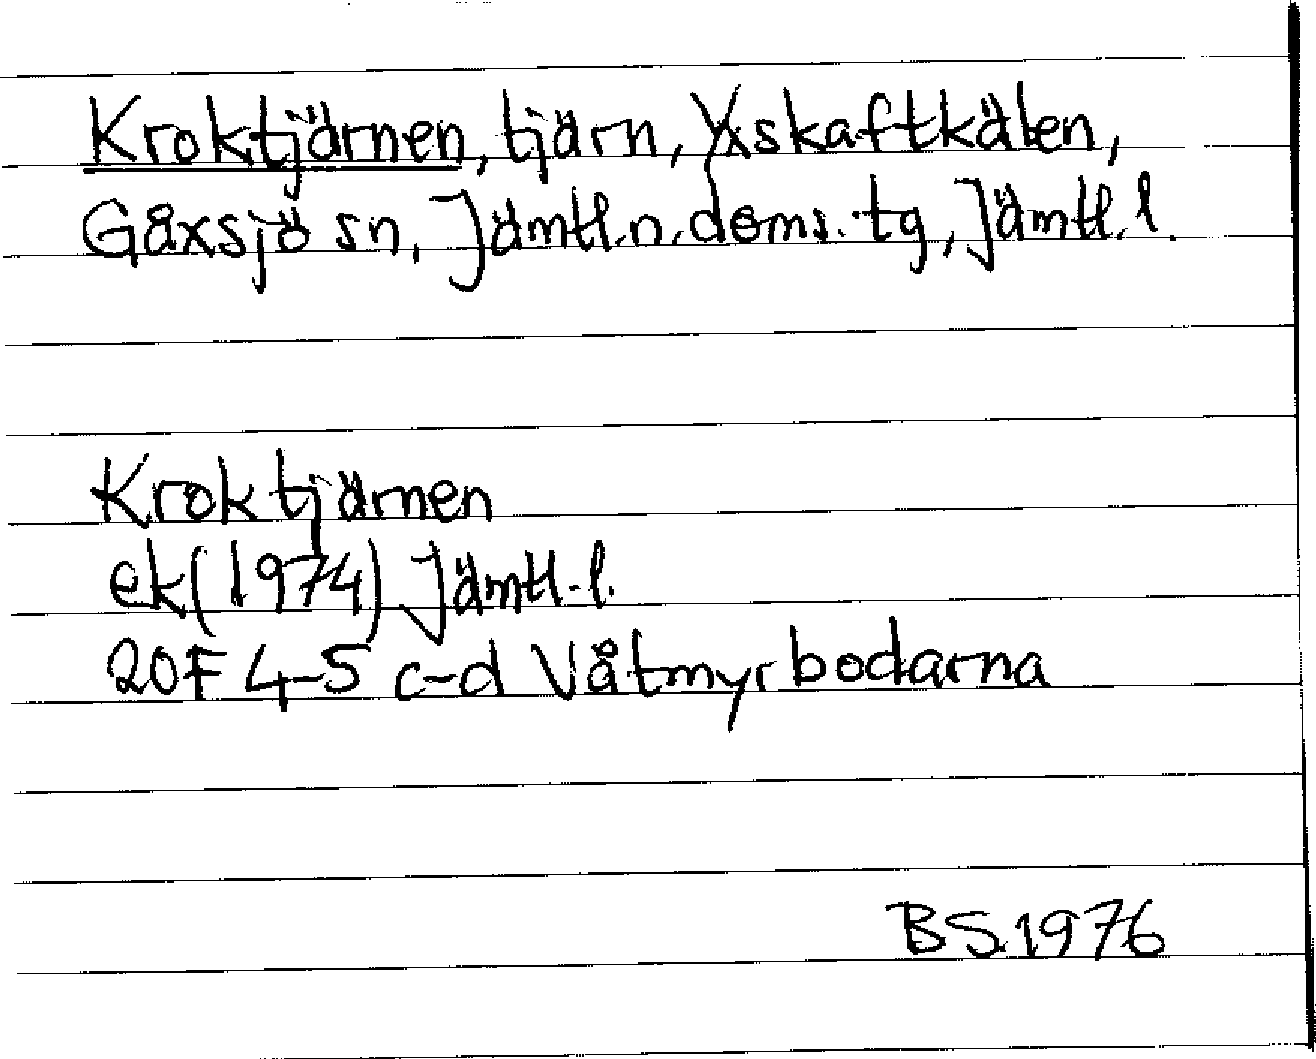 Kroktjärnen, tjärn, Yxskaftkälen,
Gåxsjö sn, Jämtl.n.doms.tg, Jämtl.l.
Kroktjärnen
ek(1974) Jämtl.l.
20F 4-5 c-d Våtmyrbodarna
BS.1976